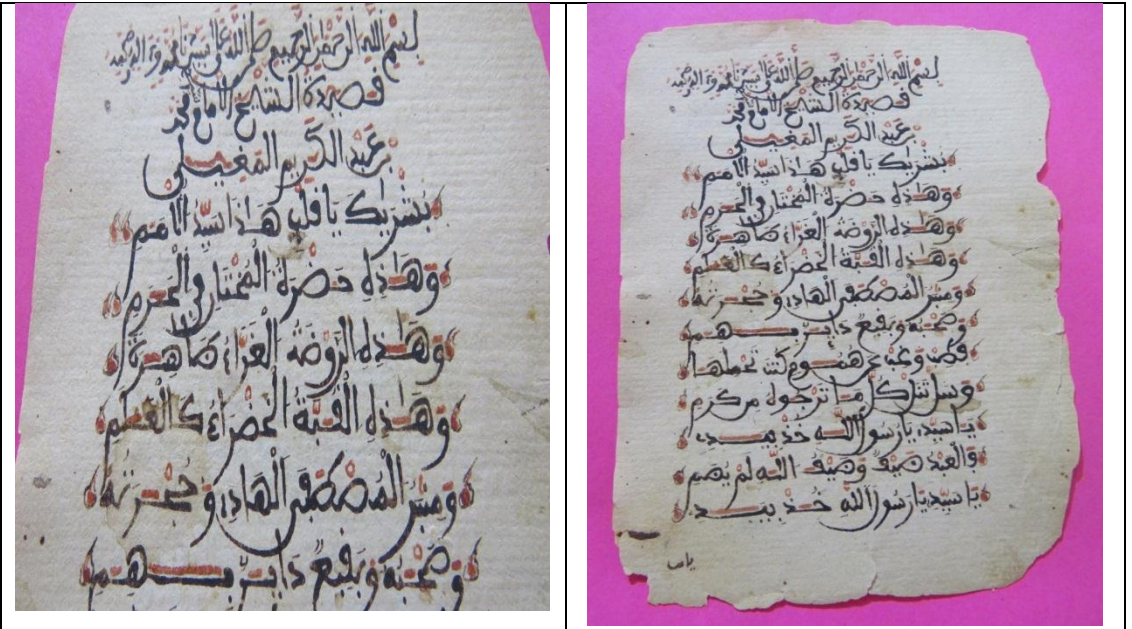 بسم الله الرحمن الرحيم صلى الله على سيدنا محمد
قصيدة الشيخ الامام محمد
بن عبد الكريم المغيلي
بشريك يا قلب هاذا سيد الامم
وهاذه حضرة المختار في الحرم
وهاذه الروضة الغراء ظاهرة
وهاذه القبة الخضراء كالعلم
ومنبر المصطفى الهادي وحجرته
وصحبه وبقيع دائر بهم
بسم الله الرحمن الرحيم صلى الله على سيدنا محمد
قصيدة الشيخ الامام محمد
بن عبد الكريم المغيلي
بشريك يا قلب هاذا سيد الامم
وهاذه حضرة المختار في الحرم
وهاذه الروضة الغراء ظاهرة
وهاذه القبة الخضراء كالعلم
ومنبر المصطفى الهادي وحجرته
وصحبه وبقيع دائر بهم
فطب وغب عن هموم كنت تحملها
وسل تنل كل ما ترجوه من كرم
يا سيدي يا رسول الله خذ بيدي
فالعبد ضيف وضيف الله لم يضم
يا سيدي يا رسول الله خذ بيدي